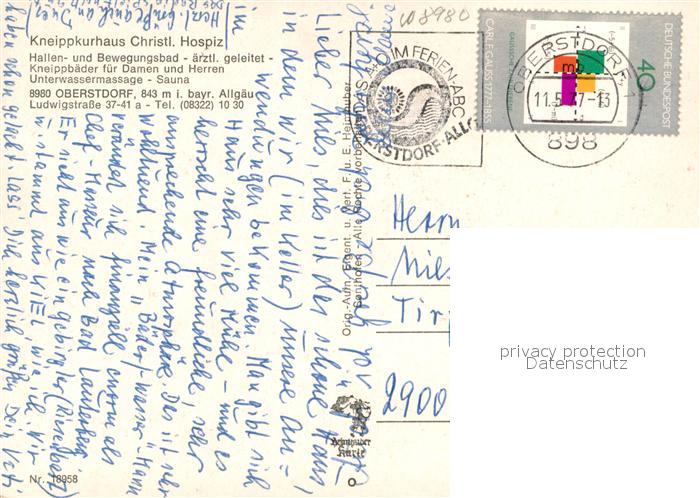 Kneippkurhaus Christl. Hospiz
Hallen- und Bewegungsbad - ärztl. geleitet -
Kneippbäder für Damen und Herren
Unterwassermassage - Sauna
8980 OBERSTDORF, 843 m i. bayr. Allgäu
Ludwigstraße 37-41 a - Tel. (08322) 10 30
Lieber Nils, dies ist das schöne Haus,
in dem wir (im Keller) unsere An-
wendungen bekommen. Man gibt sich
im Haus sehr viel Mühe - und es
herrscht eine freundliche, sehr
ansprechende Atmosphäre. Das ist sehr
wohltuend. Mein "Bäder/wasser-Mann
verändert sich finanziell enorm als
Chef-Masseur nach Bad Lauterberg.
Er sieht aus wie ein gebirgler (Riesenbart)
u. stammt aus KIEL, wie ich. Wir
haben schon gelacht. Lass Dich herzlich grüßen Dein Vati
W8980
DAS A+O IM FERIEN-ABC
OBERSTDORF-ALLG
OBERSTDORF 1
mb
11.5.77-13
898
CARL F. GAUSS 1777-1855
40
DEUTSCHE BUNDESPOST
Orig.-Aufn. Eigent. u. Verl. F. u. E. Heimhuber
Sonthofen - Alle Rechte vorbehalten
Heimhuber
Karte
Herrn
Nils
Tirp
2900
privacy protection
Datenschutz
Nr. 18958